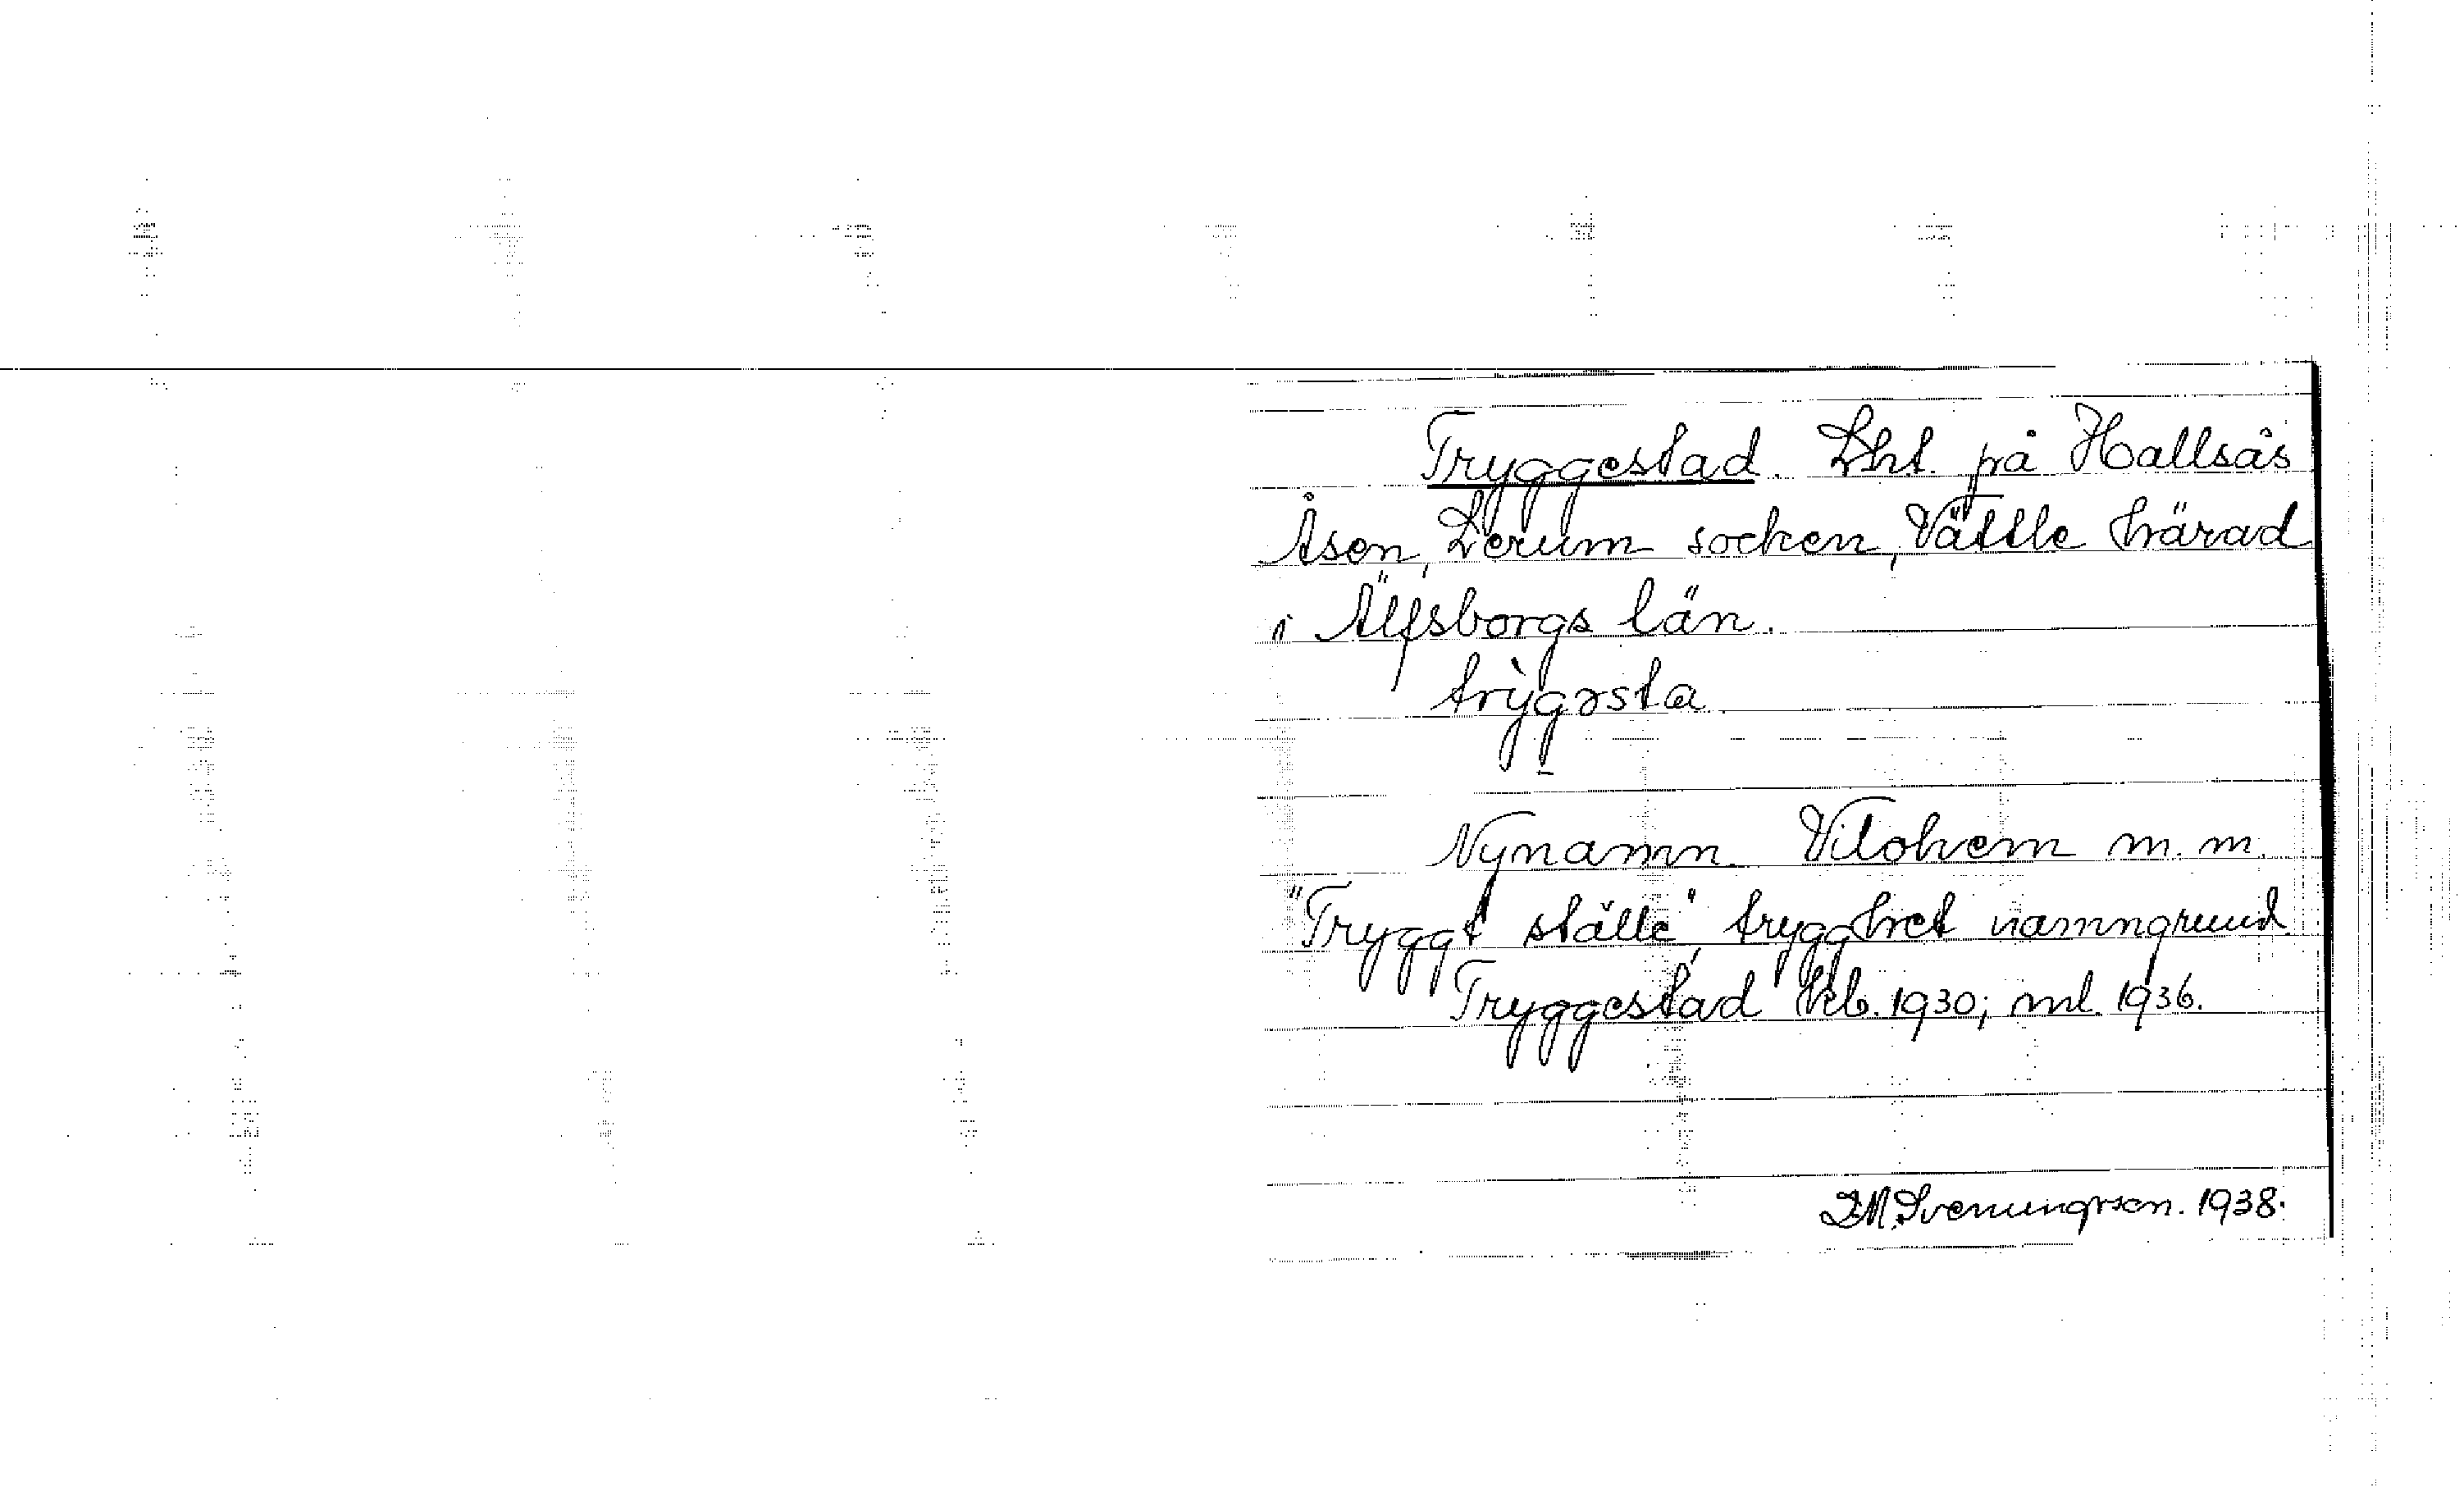 Tryggestad. Lht. på Hallsås
Åsen, Lerum socken, Vättle härad
i Älfsborgs län.
trỳgəsta
Nynamn. Vilohem m. m.
"Tryggt ställe", trygghet namngrund.
Tryggestad kb. 1930; ml. 1936.
D.M. Svenungsson. 1938.